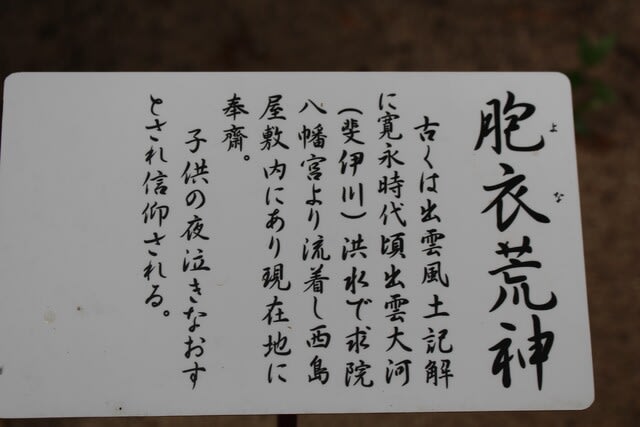 胞衣荒神
よな
古くは出雲風土記解
に寛永時代頃出雲大河
(斐伊川)洪水で求院
八幡宮より流着し西島
屋敷内にあり現在地に
奉齋。
子供の夜泣きなおす
とされ信仰される。